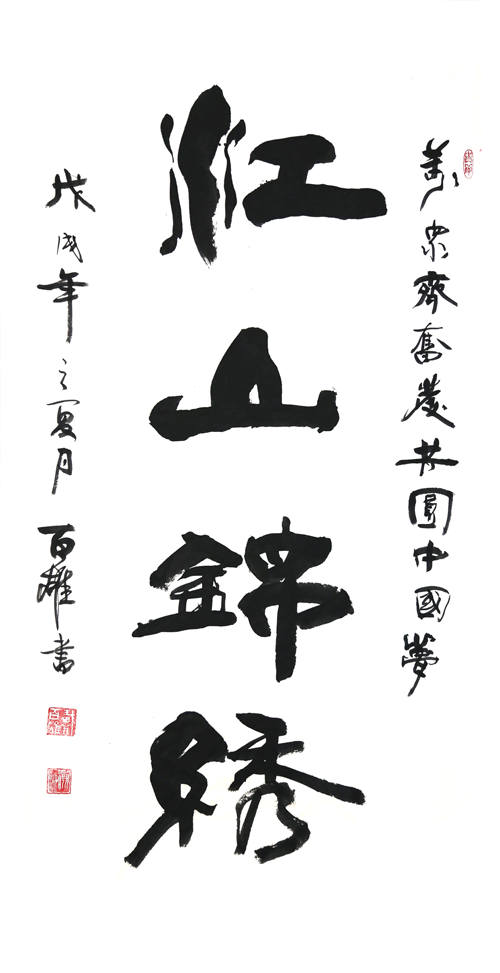 萬眾齊奮發共圓中國夢
江山錦綉
戊戌年之夏月百雄書